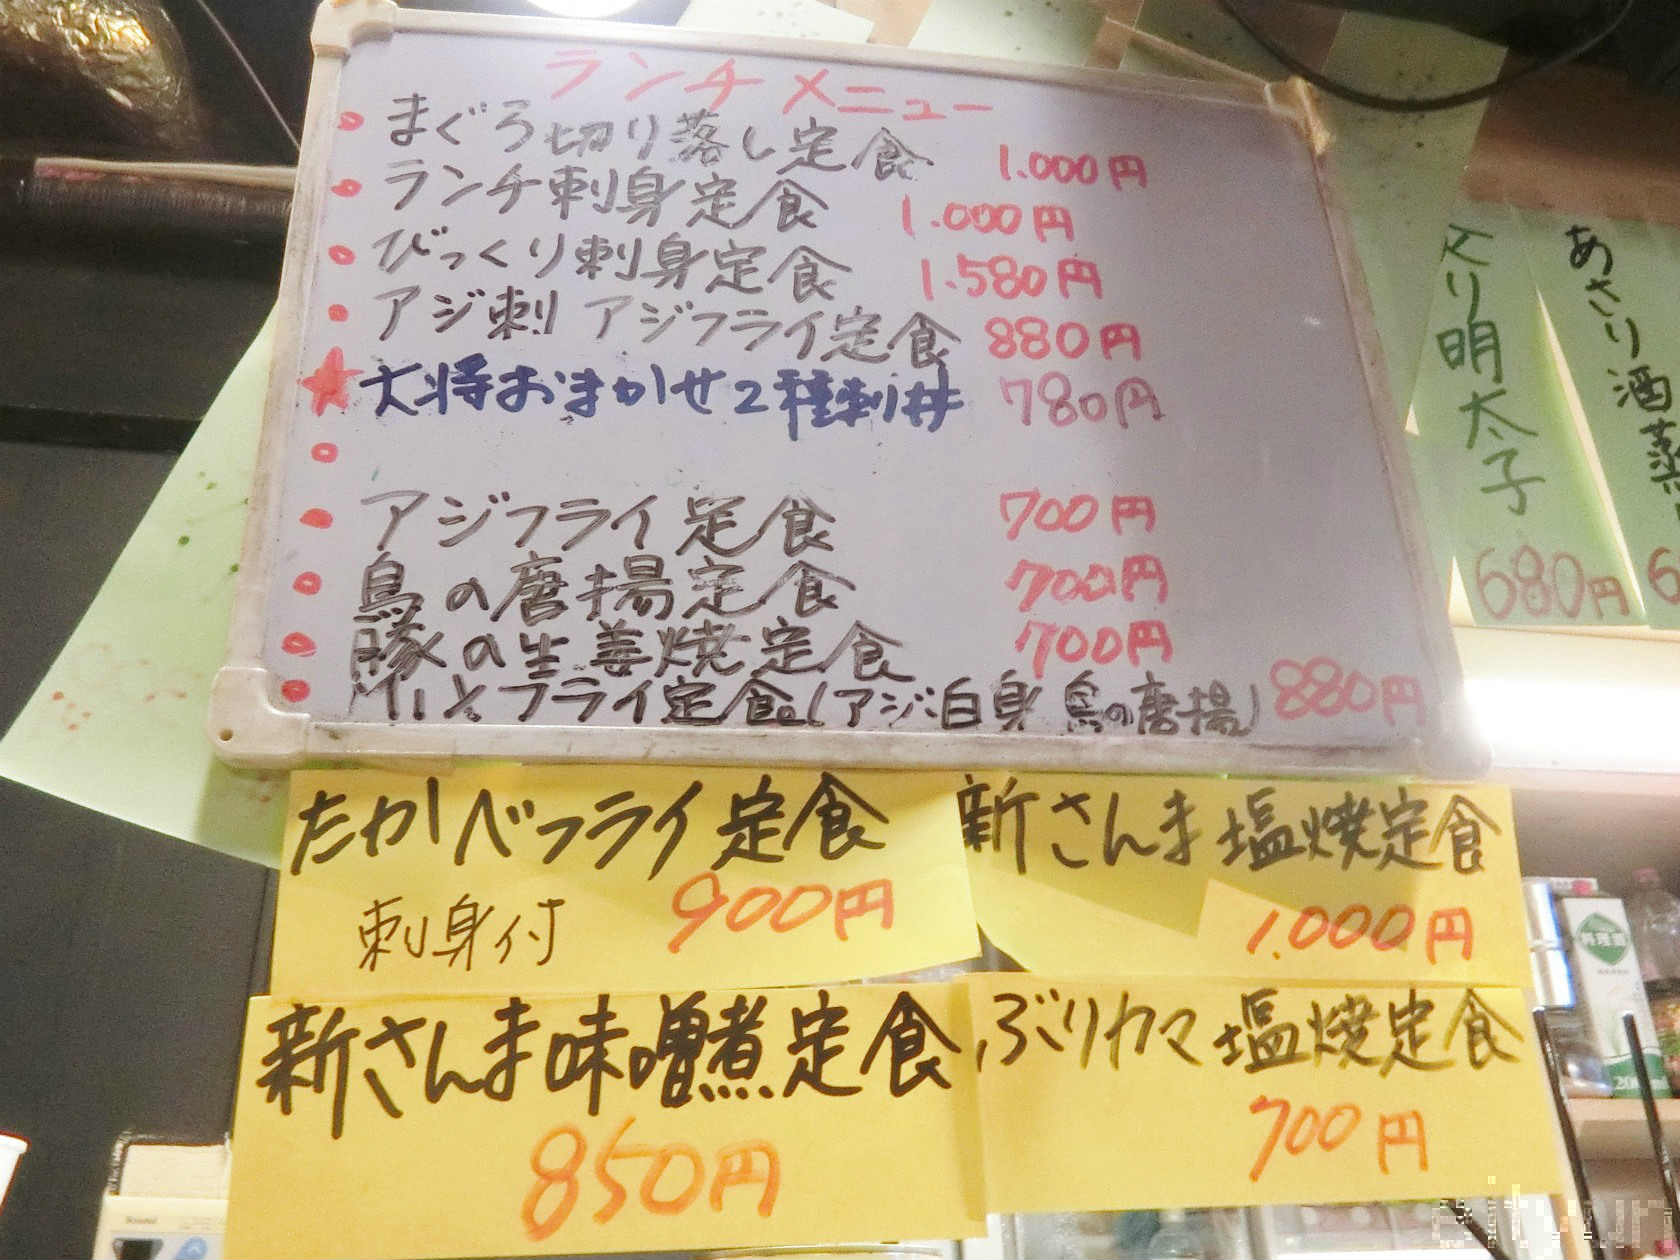 ランチメニュー
まぐろ切り落し定食 1.000円
ランチ刺身定食 1.000円
びっくり刺身定食 1.580円
アジ刺 アジフライ定食 880円
大将おまかせ2種刺丼 780円
アジフライ定食 700円
鳥の唐揚定食 700円
豚の生姜焼定食 700円
フライ定食(アジ・白身 鳥の唐揚) 880円
たかべフライ定食
刺身付 900円
新さんま塩焼定食
1.000円
新さんま味噌煮定食
850円
ぶりカマ塩焼定食
700円
明太子
680円
あさり酒蒸